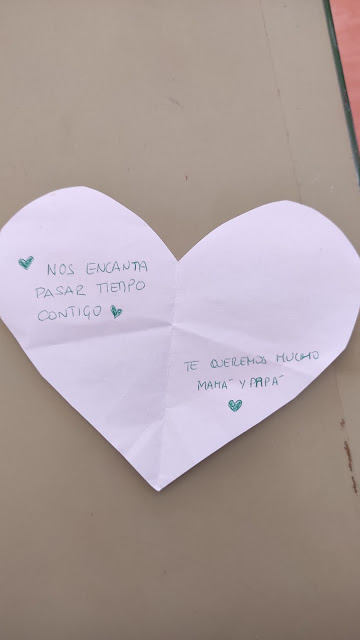 NOS ENCANTA
PASAR TIEMPO
CONTIGO
TE QUEREMOS MUCHO
MAMÁ Y PAPÁ